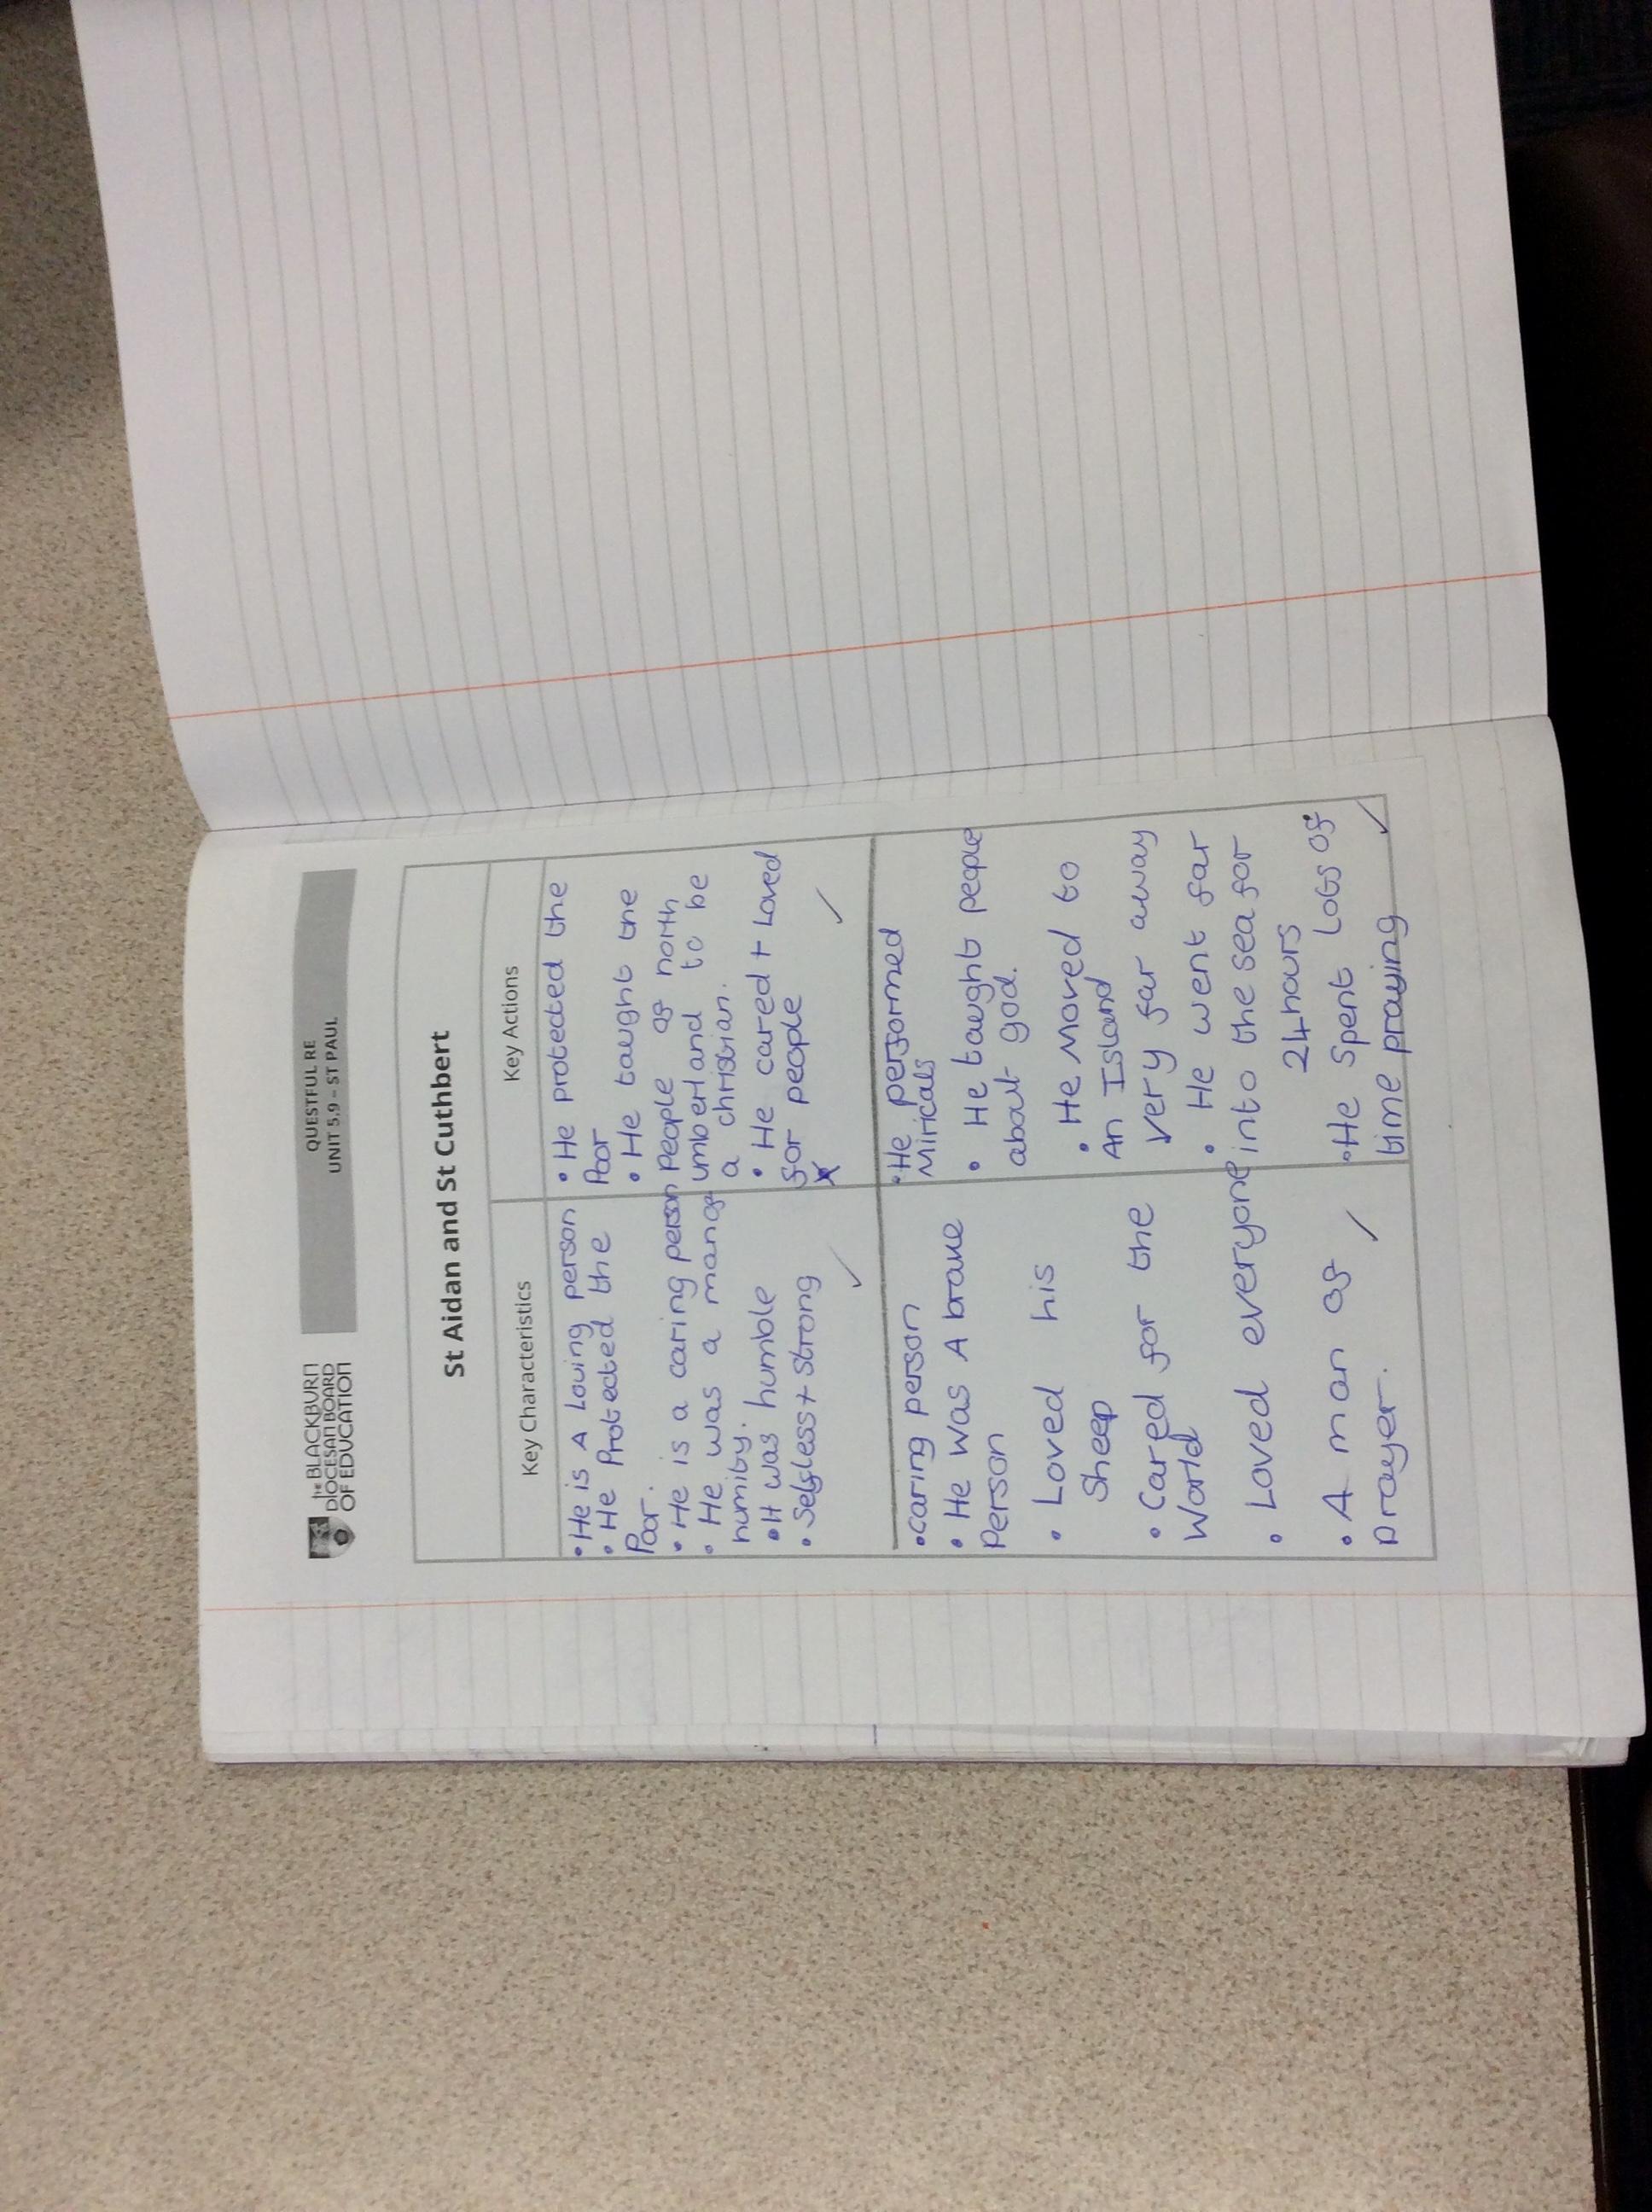 THE BLACKBURN
DIOCESAN BOARD
OF EDUCATION
QUESTFUL RE
UNIT 5.9 – ST PAUL
St Aidan and St Cuthbert
Key Characteristics
Key Actions
• He is A Loving person
• He Protected the
Poor.
• He is a caring person
• He was a man of
humity.
• It was humble
• Selfless + strong
• He protected the
Poor
• He taught the
People of north
umberland to be
a christian.
• He cared + Loved
for people
• caring person
• He was A brave
person
• Loved his
Sheep
• Cared for the
World
• Loved everyone
• A man of
prayer.
• He performed
Miricals
• He taught people
about god.
• He moved to
An Island
very far away
• He went far
into the sea for
24 hours
• He spent Lots of
time praying